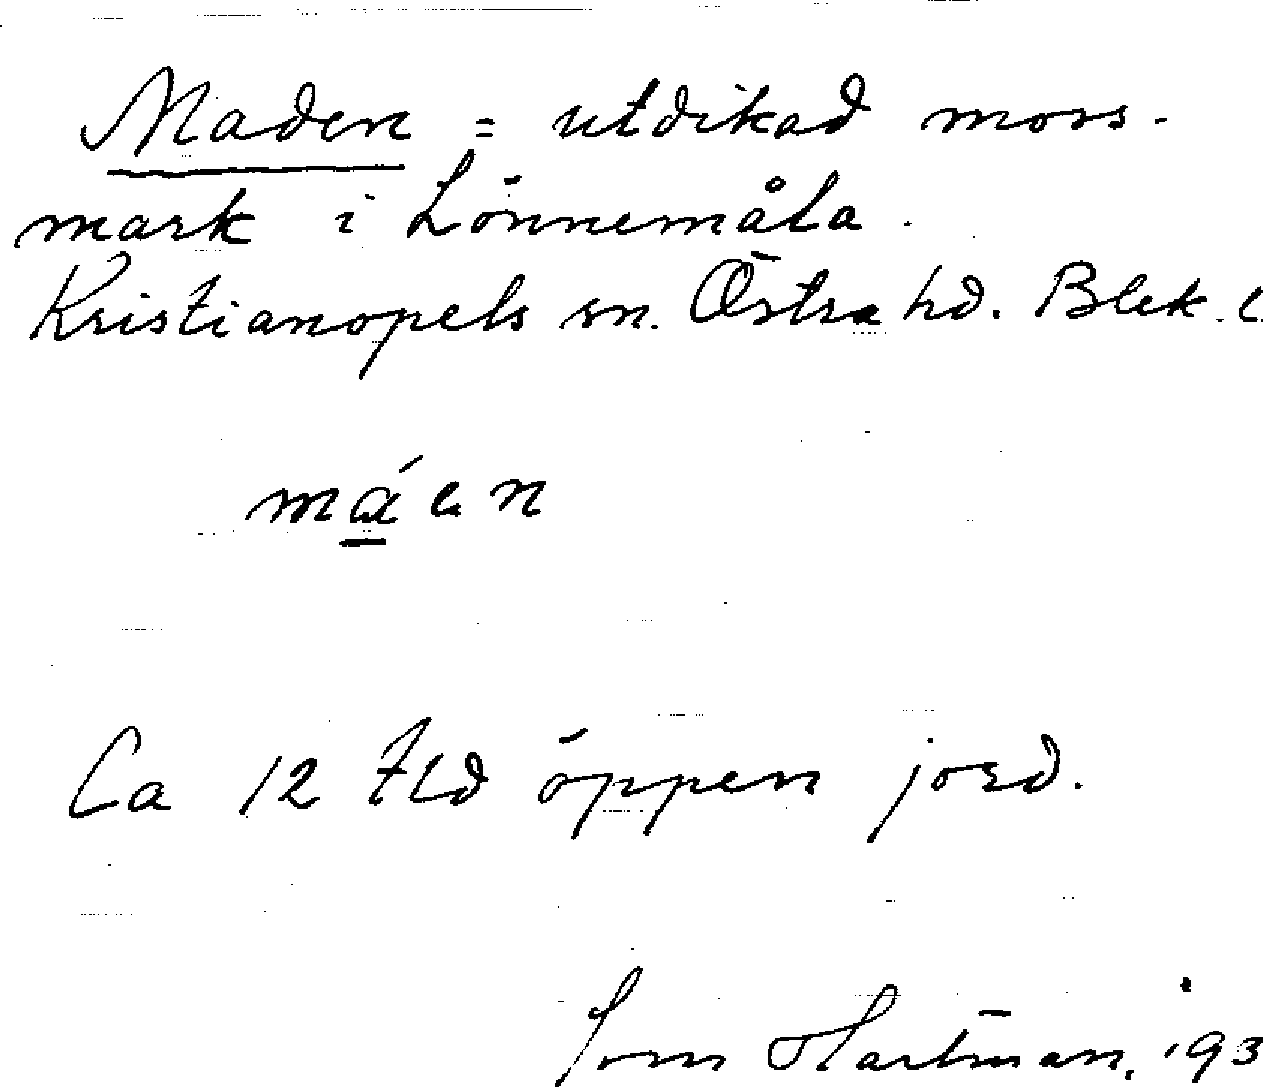 Maden = utdikad moss-
mark i Lönnemåla.
Kristianopels sn. Östra hd. Blek. l
máen
Ca 12 tld öppen jord.
Hartman, 193